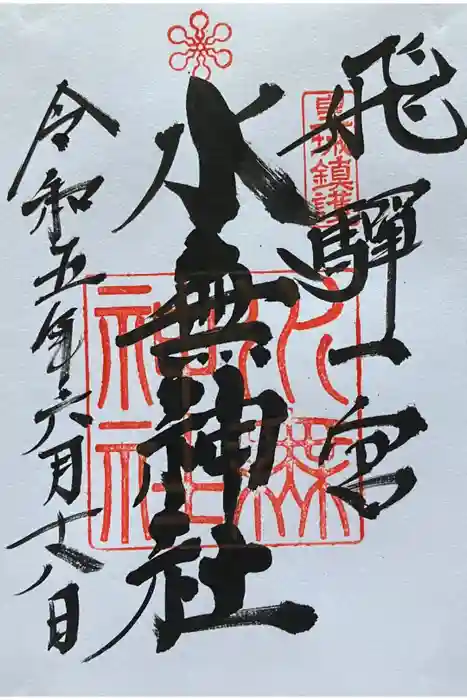 飛騨一宮
水無神社
令和五年六月十八日
水無
神社